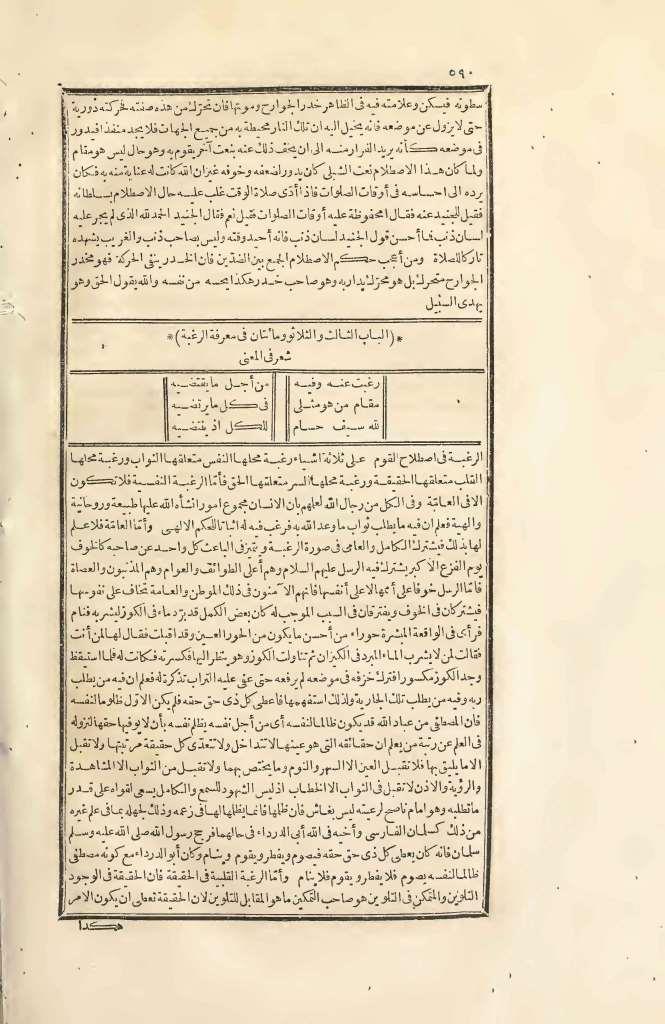 ٥٩٠
سطوته فيسكن وعلامته فيه فى الظاهر خدر الجوارح وموتها فان تحرّك من هذه صفته فحركته دورية
حتى لا يزول عن موضعه فانه يخيل اليه ان تلك النار محيطة به من جميع الجهات فلا يجد منفذا فيدور
فى موضعه كأنه يريد الفرار منه الى ان يخف ذلك عنه بنعت آخر يقوم به وهو حال ليس هو مقام
ولما كان هذا الاصطلام نعت الشبلى كان يدور لضعفه وخوفه غير ان الله كانت له عناية منه به فكان
يرده الى احساسه فى أوقات الصلوات فاذا أدّى صلاة الوقت غلب عليه حال الاصطلام بسلطانه
فقيل للجنيد عنه فقال امحفوظة عليه أوقات الصلوات فقيل نعم فقال الجنيد الحمد لله الذى لم يجر عليه
لسان ذنب فما أحسن قول الجنيد لسان ذنب فانه أحيد وقته وليس بصاحب ذنب والغريب يشهده
تاركا للصلاة ومن أعجب حكم الاصطلام الجمع بين الضدّين فان الخدر ينفى الحركة فهو مخدر
الجوارح متحرك بل هو محرّك يدار به وهو صاحب خدر هكذا يحسه من نفسه والله يقول الحق وهو
يهدى السبيل
*(الباب الثالث والثلاثون ومائتان فى معرفة الرغبة)*
شعر فى المعنى
رغبت عنه وفيه من أجل ما يقتضيه
مقام من هو مثلى فى كل ما يرتضيه
لله سيف حسام للكل اذ ينتضيه
الرغبة فى اصطلاح القوم على ثلاثة انحاء رغبة محلها النفس متعلقها الثواب ورغبة محلها
القلب متعلقها الحقيقة ورغبة محلها السر متعلقها الحق فأمّا الرغبة النفسية فلا تكون
الا فى العامّة وفى الكمل من رجال الله لعلمهم بان الانسان مجموع امور انشأه الله عليها طبيعة وروحانية
والهية فعلم ان فيه ما يطلب ثواب ما وعد الله به فرغب فيه له اثباتا للحكم الالهى وأمّا العامّة فلا علم
لها بذلك فيشترك الكامل والعامى فى صورة الرغبة ويتميز فى الباعث كل واحد عن صاحبه كالخوف
يوم الفزع الاكبر يشترك فيه الرسل عليهم السلام وهم أعلى الطوائف والعوام وهم المذنبون والعصاة
فأمّا الرسل خوفا على أممها لا على أنفسها فانهم الآمنون فى ذلك الموطن والعامة تخاف على نفوسها
فيشتركان فى الخوف ويفترقان فى السبب الموجب له كان بعض الكمل قد برّد ماء فى الكوز ليشربه فنام
فرأى فى الواقعة المبشرة حوراء من أحسن ما يكون من الحور العين وقد اقبلت فقال لها لمن أنت
فقالت لمن لا يشرب الماء المبرد فى الكيزان ثم تناولت الكوز وهو ينظر اليها فكسرته فكانت له فلما استيقظ
وجد الكوز مكسورا فترك خزفه فى موضعه لم يرفعه حتى عفى عليه التراب تذكرة له فعلم ان فيه من يطلب
ربه وفيه من يطلب تلك الجارية ولذلك استفهمها فأعطى كل ذى حق حقه فلم يكن الاول ظلوما لنفسه
فان المصطفى من عباد الله قد يكون ظالما لنفسه أى من أجل نفسه يظلم نفسه بأن لا يوفيها حقها لنزوله
فى العلم عن رتبة من يعلم ان حقائقه التى هو عينها لا تتداخل ولا تتعدّى كل حقيقة مرتبتها ولا تقبل
الا ما يليق بها فلا تقبل العين الا السهر والنوم وما يختص بهما ولا تقبل من الثواب الا المشاهدة
والرؤية والاذن لا تقبل فى الثواب الا الخطاب اذ ليس الشهود للسمع والكامل يسعى لقواه على قدر
ما تطلبه وهو امام ناصح لرعيته ليس بغاش فان ظلمها فانما يظلمها لها فى زعمه وذلك لجهله بما فى علم غيره
من ذلك كسلمان الفارسى وأخيه فى الله أبى الدرداء فى حالهما فرجح رسول الله صلى الله عليه وسلم
سلمان فانه كان يعطى كل ذى حق حقه فيصوم ويفطر ويقوم وينام وكان أبو الدرداء مع كونه مصطفى
ظالما لنفسه يصوم فلا يفطر ويقوم فلا ينام وأمّا الرغبة القلبية فى الحقيقة فان الحقيقة فى الوجود
التلوين والمتمكن فى التلوين هو صاحب التمكين ما هو المقابل للتلوين لان الحقيقة تعطى ان يكون الامر
هكذا